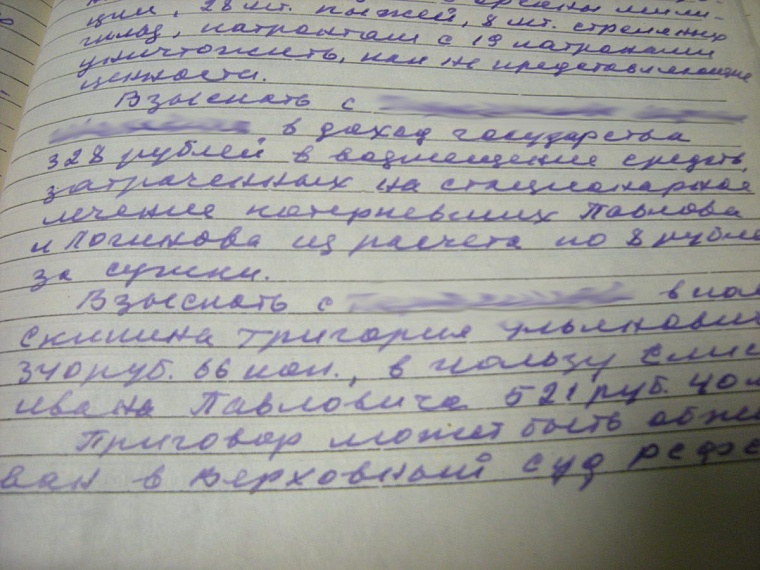 ции, 28 шт. пыжей, 8 шт. стреляных
гильз, патронташ с 19 патронами
уничтожить, как не представляющие
ценности.
Взыскать с
в доход государства
328 рублей в возмещение средств,
затраченных на стационарное
лечение потерпевших Павлова
и Логинова из расчета по 8 рубле
за сутки.
Взыскать с в пол
Скипина Григория Ульянови
340 руб. 66 коп., в пользу
Ивана Павловича 521 руб. 40
Приговор может быть обжа
ван в Верховный суд РСФС